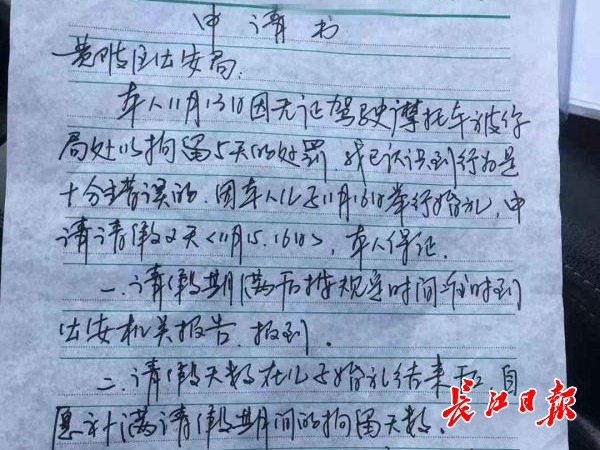 申请书
黄陂区公安局:
本人11月13日因无证驾驶摩托车被你
局处以拘留5天的处罚.我已认识到行为是
十分错误的.因本人儿子11月16日举行婚礼,申
请请假2天<11月15.16日>,本人保证.
一.请假期满后按规定时间准时到
公安机关报告.报到.
二.请假天数在儿子婚礼结束后自
愿补满请假期间的拘留天数.
长江日报